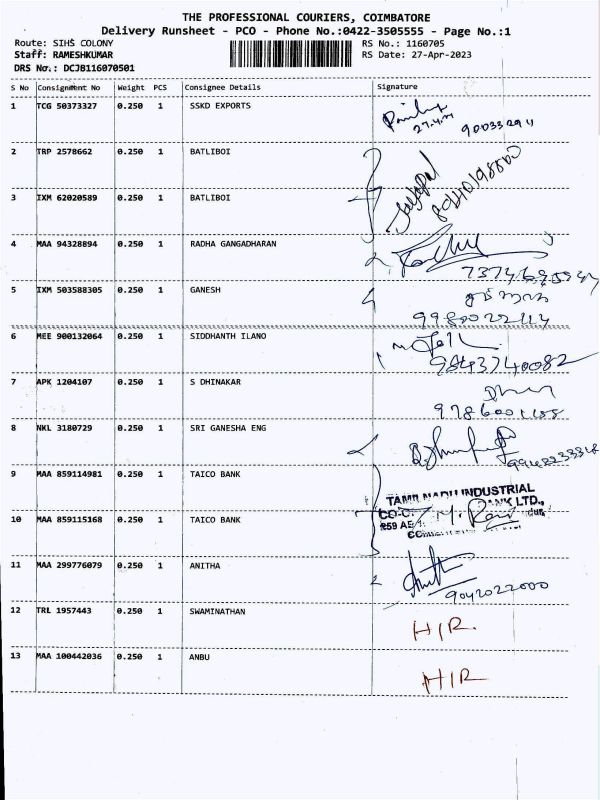 THE PROFESSIONAL COURIERS, COIMBATORE
Delivery Runsheet - PCO - Phone No.:0422-3505555 - Page No.:1
Route: SIHS COLONY RS No.: 1160705
Staff: RAMESHKUMAR RS Date: 27-Apr-2023
DRS No.: DCJB116070501
S No Consignment No Weight PCS Consignee Details Signature
1 TCG 50373327 0.250 1 SSKD EXPORTS
2 TRP 2578662 0.250 1 BATLIBOI
3 IXM 62020589 0.250 1 BATLIBOI
4 MAA 94328894 0.250 1 RADHA GANGADHARAN
5 IXM 503588305 0.250 1 GANESH
6 MEE 900132064 0.250 1 SIDDHANTH ILANO
9843740082
7 APK 1204107 0.250 1 S DHINAKAR
8 NKL 3180729 0.250 1 SRI GANESHA ENG
9 MAA 859114981 0.250 1 TAICO BANK
TAMIL NADU INDUSTRIAL
BANK LTD.,
10 MAA 859115168 0.250 1 TAICO BANK
11 MAA 299776079 0.250 1 ANITHA
9042022000
12 TRL 1957443 0.250 1 SWAMINATHAN H/R.
13 MAA 100442036 0.250 1 ANBU H/R